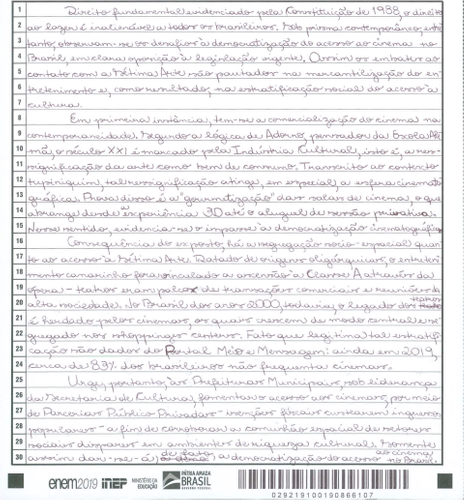 1 Direito fundamental evidenciado pela Constituição de 1988, o direito
2 ao lazer é inalienável a todos os brasileiros. Sob prisma contemporâneo, entre-
3 tanto, observam-se os desafios à democratização do acesso ao cinema no
4 Brasil, em clara oposição à legislação vigente. Assim os embates ao
5 contato com a Sétima Arte são pautados na mercantilização do en-
6 tretenimento e, como resultado, na estratificação social do acesso à
7 cultura.
8 Em primeira instância, tem-se a comercialização do cinema na
9 contemporaneidade. Segundo a lógica de Adorno, pensador da Escola Ale-
10 mã, o século XXI é marcado pela Indústria Cultural, isto é, a res-
11 significação da arte como bem de consumo. Transcrito ao contexto
12 tupiniquim, tal ressignificação atinge, em especial, a esfera cinemato-
13 gráfica. Prova disso é a "gourmetização" das salas de cinema, o que
14 abrange desde a experiência 3D até o aluguel de sessão privativa.
15 Nesse sentido, evidencia-se o impasse à democratização cinematográfica
16 Consequência do exposto, há a segregação socio-espacial quan-
17 to ao acesso à Sétima Arte. Datado de origens oligárquicas, o entreteni-
18 mento camarinho fora vinculado a ascensão à Classe A através da
19 ópera - teatros eram palcos de transações comerciais e reuniões da
20 alta sociedade. No Brasil dos anos 2000, todavia, o legado dos teatros
21 é herdado pelos cinemas, os quais crescem de modo central e se-
22 gregado nos shoppings centers. Fato que legitima tal estratifi-
23 cação são dados do Portal Meio e Mensagem: ainda em 2019,
24 cerca de 83% dos brasileiros não frequenta cinemas.
25 Urge, portanto, às Prefeituras Municipais, sob liderança
26 da Secretaria de Cultura, fomentar o acesso aos cinemas, por meio
27 de Parcerias Público Privadas - isenções fiscais custearem ingressos
28 populares - a fim de corroborar a comunhão espacial de setores
29 sociais díspares em ambientes de riqueza cultural. Somente
30 assim dar-se-á, de fato, a democratização do acesso ao cinema no Brasil.
enem2019 inep MINISTÉRIO DA EDUCAÇÃO PÁTRIA AMADA BRASIL GOVERNO FEDERAL
029219100190866107